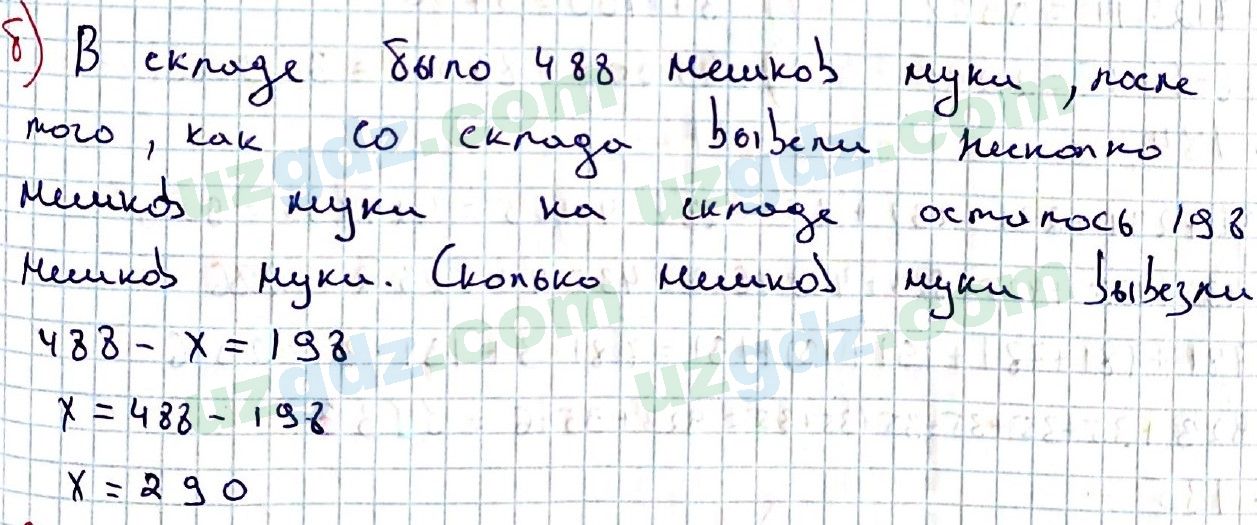 б) В складе было 488 мешков муки, после
того, как со склада вывели несколко
мешков муки на складе осталось 198
мешков муки. Сколько мешков муки вывезли
488 - x = 198
x = 488 - 198
x = 290
uzgdz.com uzgdz.com
uzgdz.com uzgdz.com